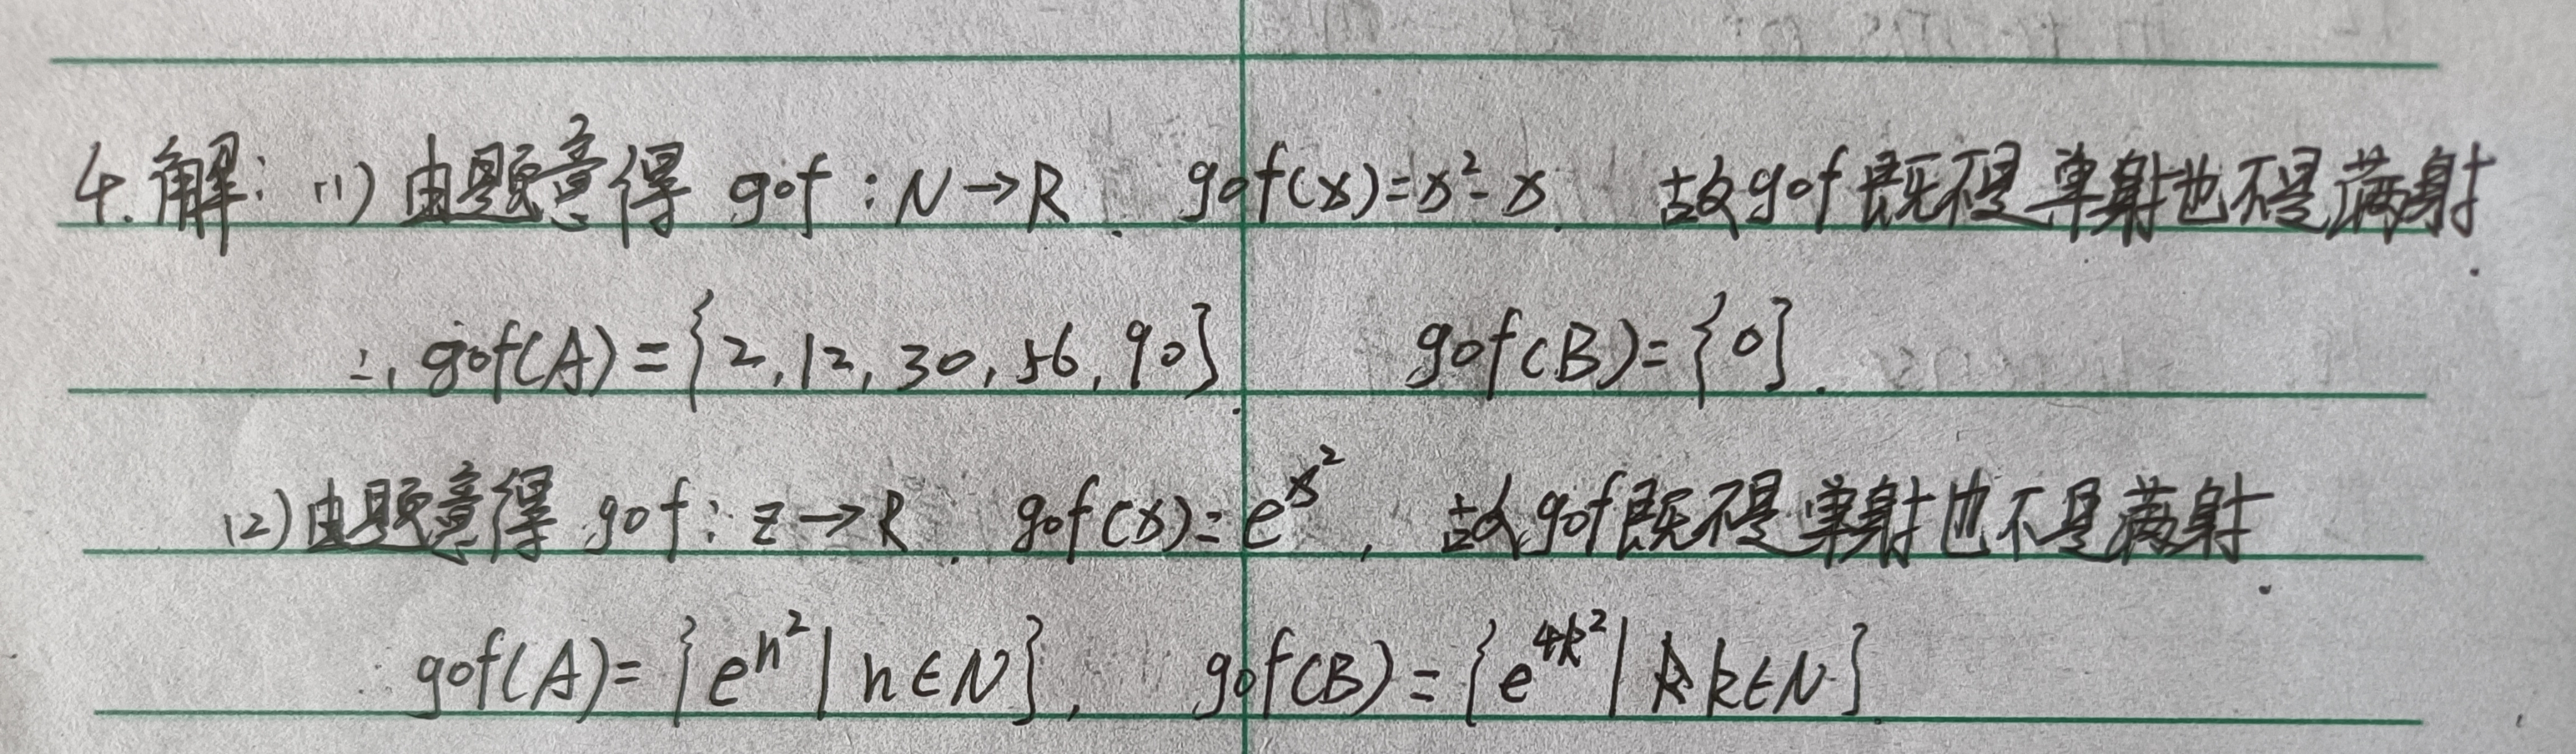 4.解：(1)由题意得 gof：N→R. gof(x)=x²-x. 故gof既不是单射也不是满射.
∴, gof(A)={2,12,30,56,90}. gof(B)={0}.
(2)由题意得 gof：Z→R. gof(x)=e^{x²}, 故gof既不是单射也不是满射.
gof(A)={e^{n²}|n∈N}, gof(B)={e^{4k²}|k∈N}.